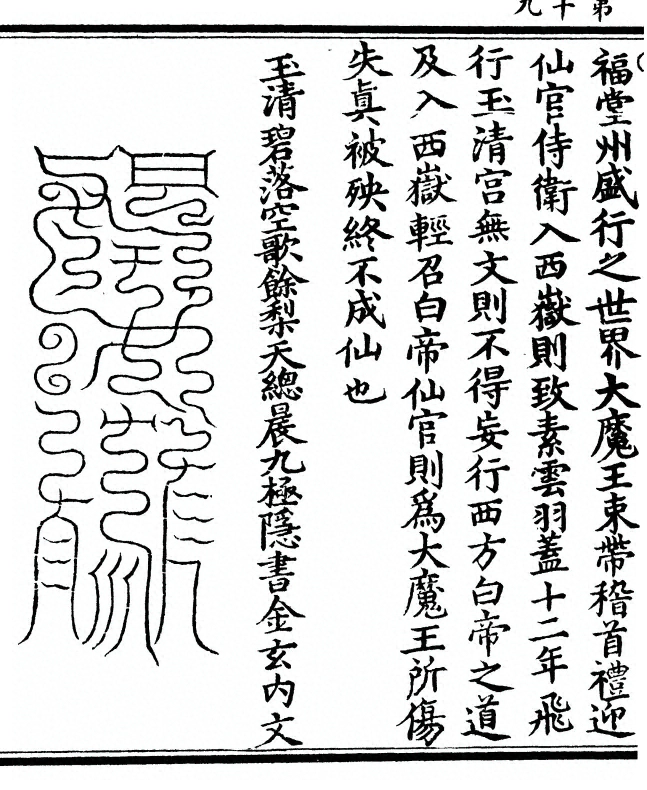 第十九
福堂州盛行之世界大魔王束帶稽首禮迎
仙官侍衛入西嶽則致素雲羽蓋十二年飛
行玉清宮無文則不得妄行西方白帝之道
及入西嶽輕召白帝仙官則爲大魔王所傷
失眞被殃終不成仙也
玉清碧落空歌餘梨天總晨九極隱書金玄內文